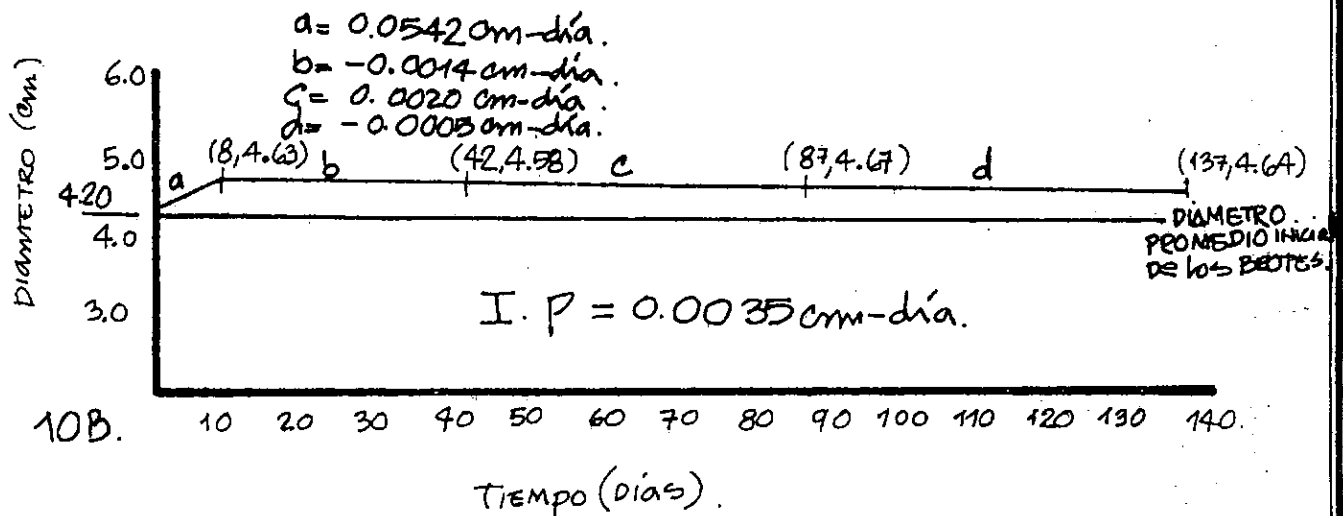 a= 0.0542 cm-día.
b= -0.0014 cm-día.
c= 0.0020 cm-día.
d= -0.0005 cm-día.
DIAMETRO (cm)
6.0
5.0
4.20
4.0
3.0
a
(8,4.63) b (42,4.58) c (87,4.67) d (137,4.64)
DIAMETRO
PROMEDIO INICIA
DE LOS BROTES.
I. P = 0.0035 cm-día.
10B. 10 20 30 40 50 60 70 80 90 100 110 120 130 140.
TIEMPO (DíAS).